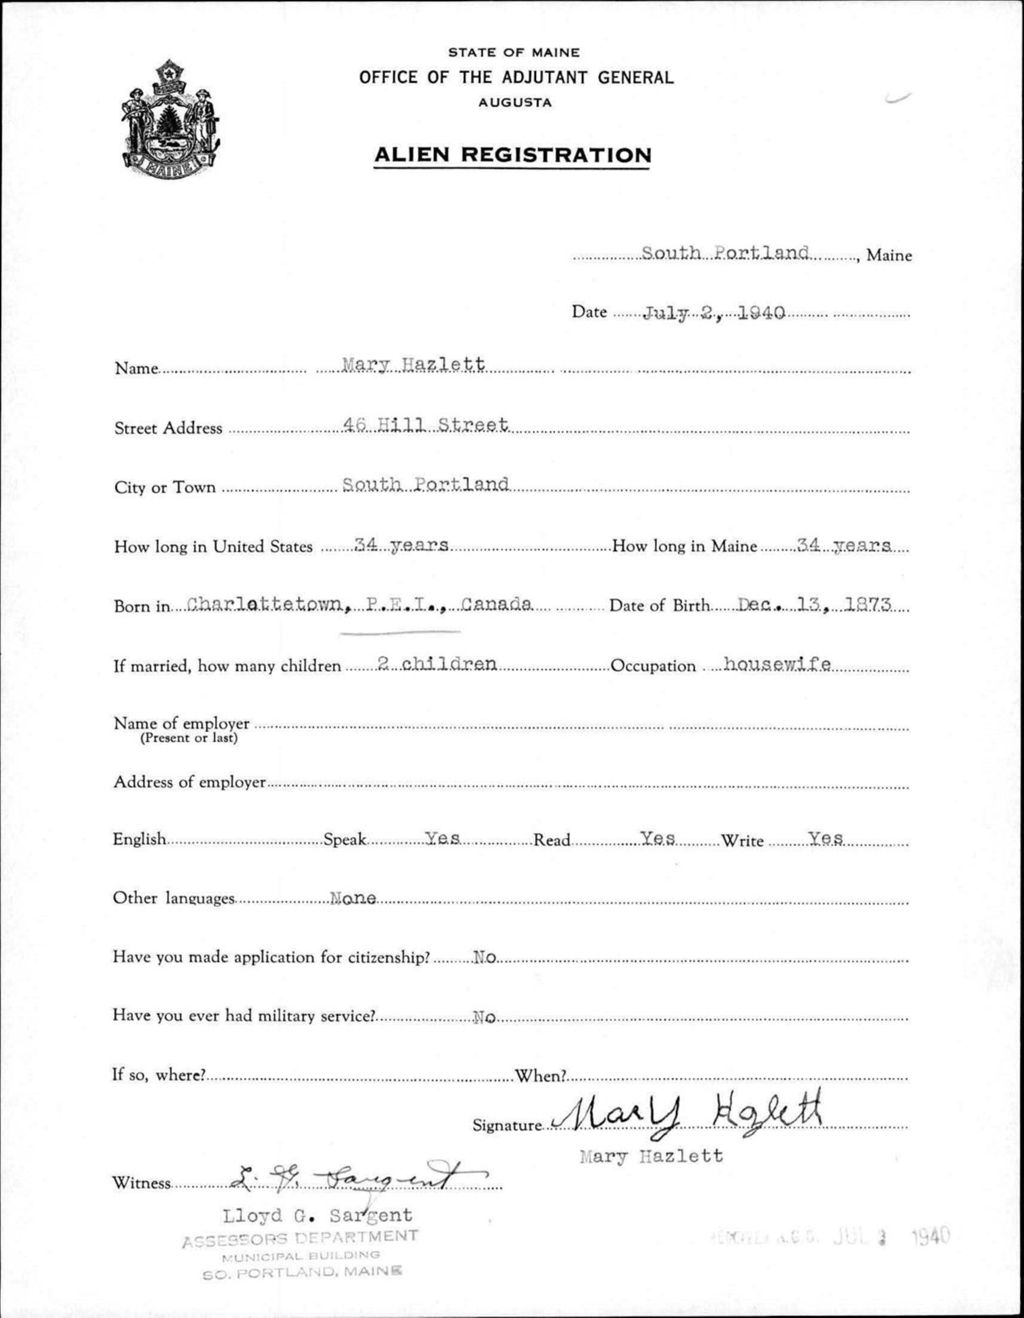 STATE OF MAINE
OFFICE OF THE ADJUTANT GENERAL
AUGUSTA
ALIEN REGISTRATION
MAINE
South Portland, Maine
Date July 2, 1940
Name Mary Hazlett
Street Address 46 Hill Street
City or Town South Portland
How long in United States 34 years How long in Maine 34 years
Born in Charlottetown, P.E.I., Canada Date of Birth Dec. 13, 1873
If married, how many children 2 children Occupation housewife
Name of employer
(Present or last)
Address of employer
English Speak Yes Read Yes Write Yes
Other languages None
Have you made application for citizenship? No
Have you ever had military service? No
If so, where? When?
Signature Mary Hazlett
Mary Hazlett
Witness L. G. Sargent
Lloyd G. Sargent
ASSESSORS DEPARTMENT
MUNICIPAL BUILDING
SO. PORTLAND, MAINE
A.G.O. JUL 3 1940